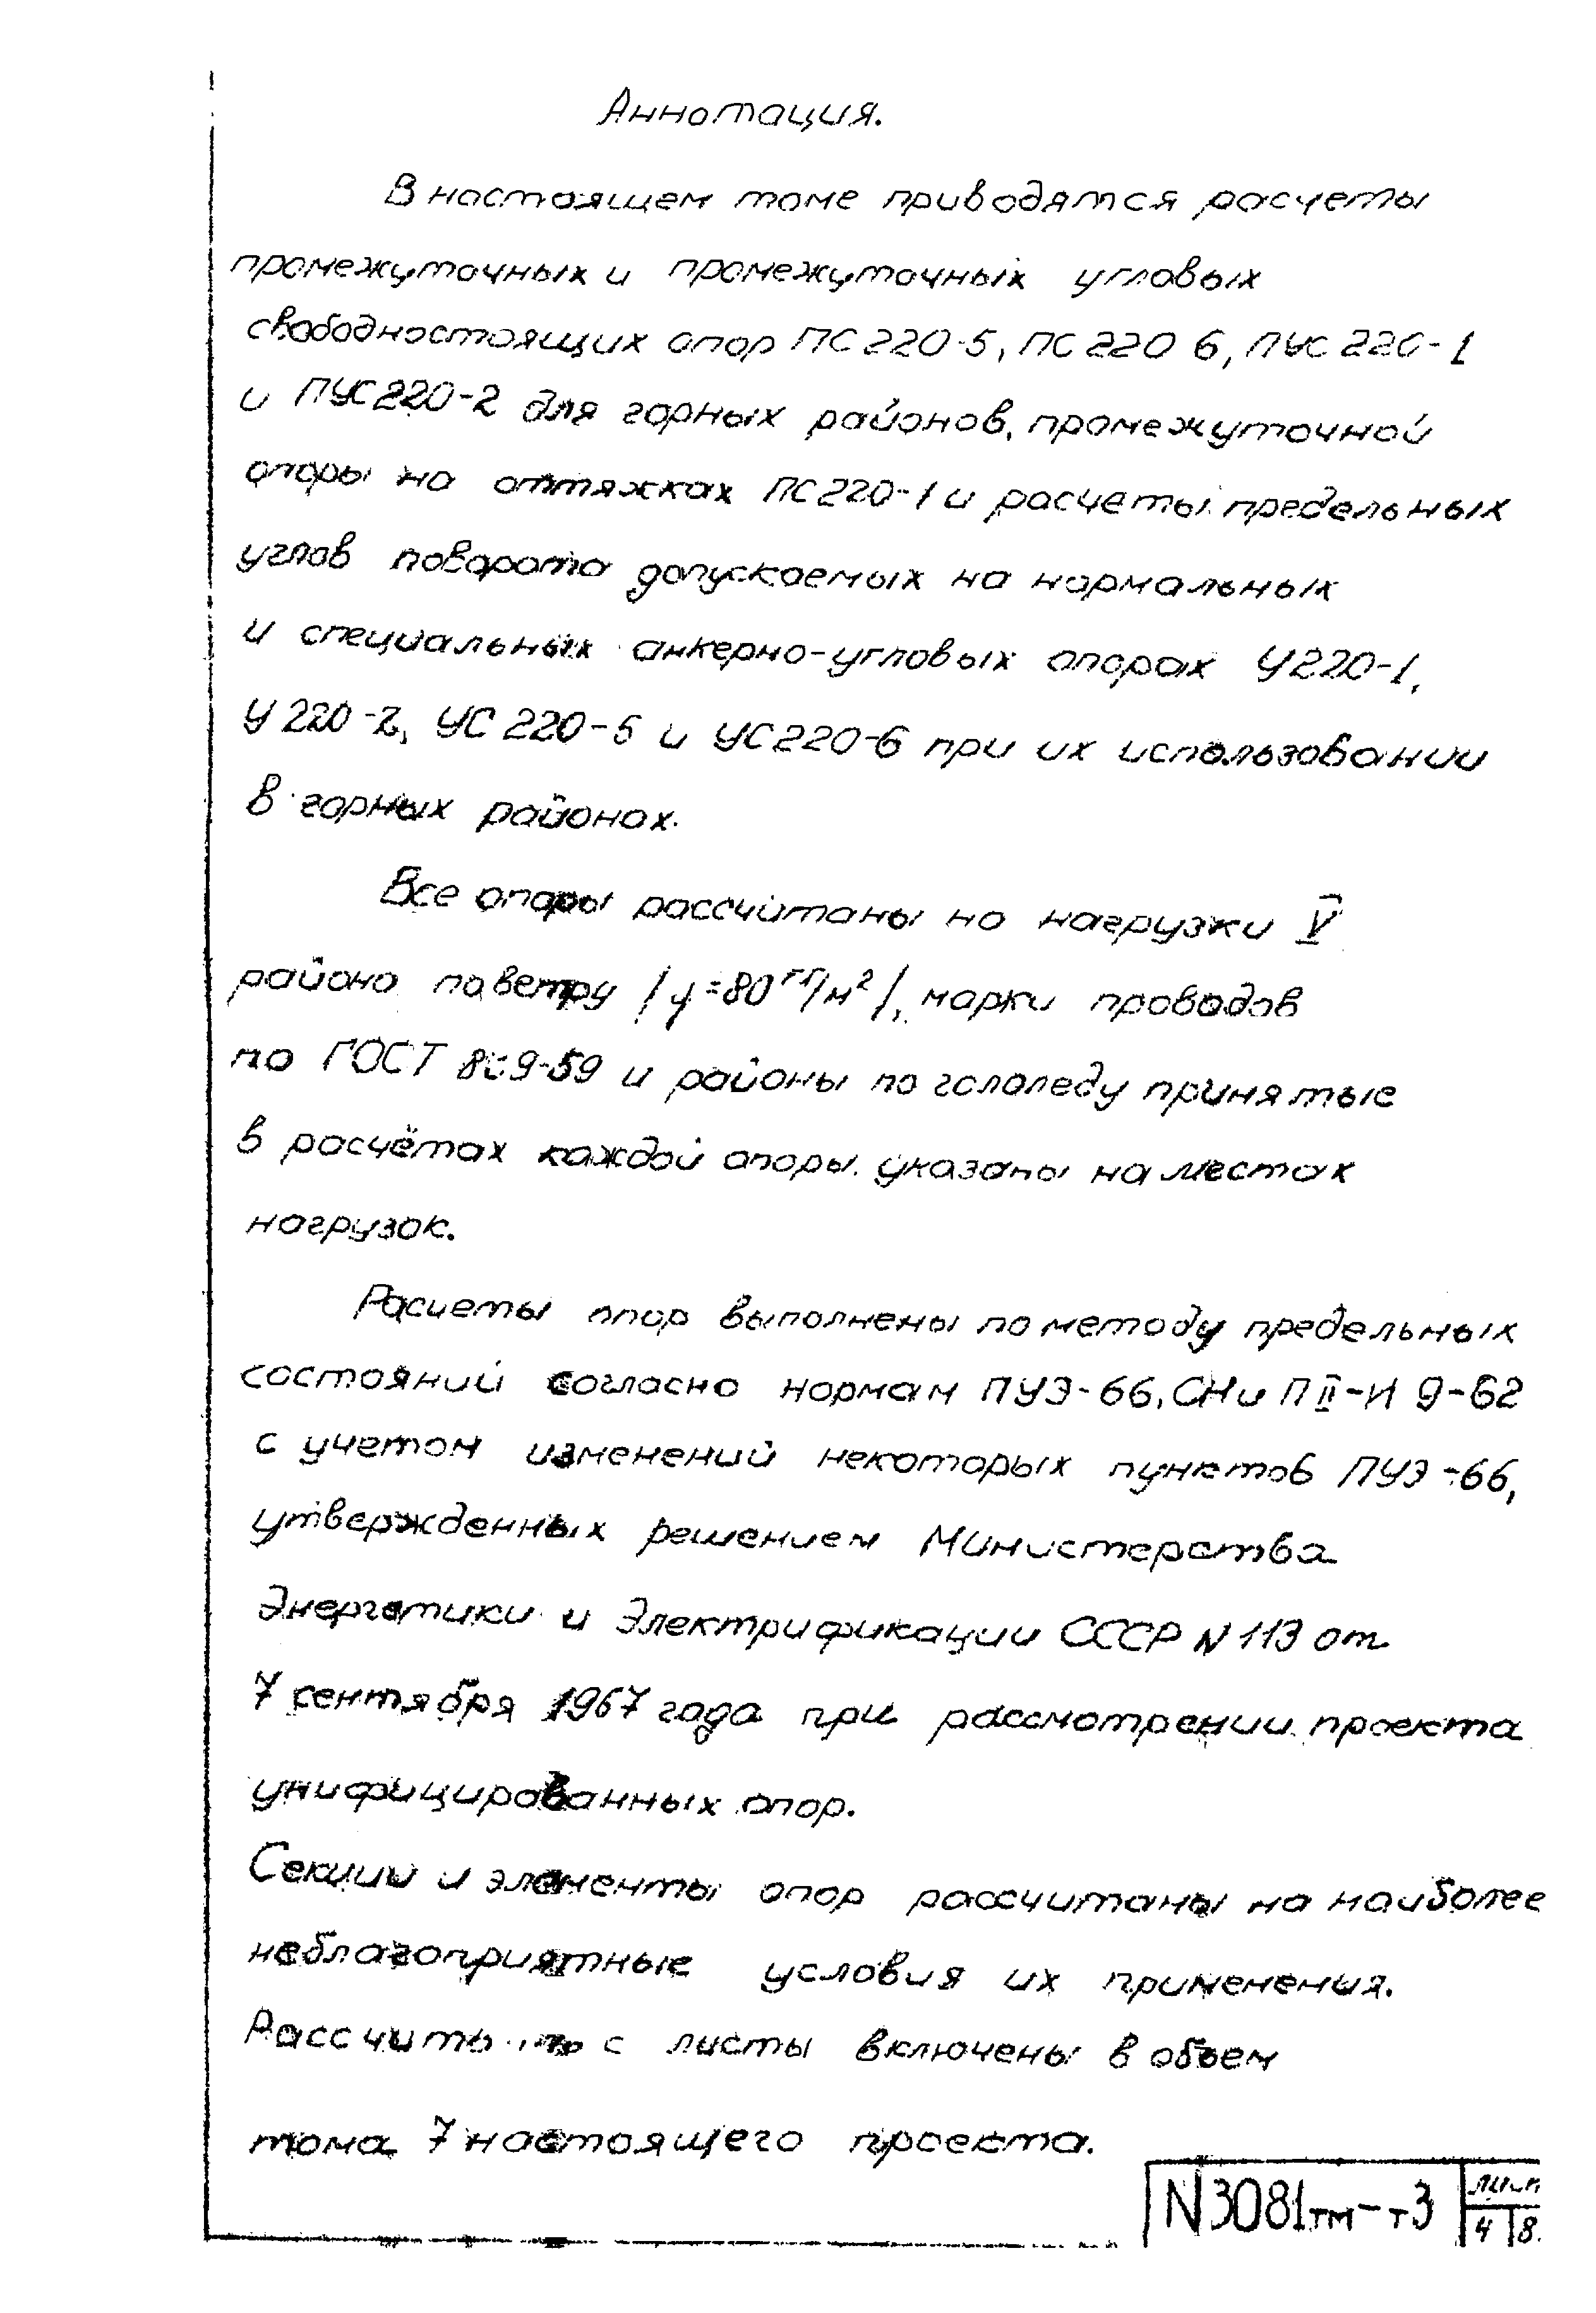 Аннотация.
В настоящем томе приводятся расчеты
промежуточных и промежуточных угловых
свободностоящих опор ПС 220-5, ПС 220 6, ПУС 220-1
и ПУС220-2 для горных районов, промежуточной
опоры на оттяжках ПС220-1 и расчеты предельных
углов поворота допускаемых на нормальных
и специальных анкерно-угловых опорах У220-1,
У 220-2, УС 220-5 и УС220-6 при их использовании
в горных районах.
Все опоры рассчитаны на нагрузки V
района по ветру /q=80 кг/м²/, марки проводов
по ГОСТ 839-59 и районы по гололеду принятые
в расчётах каждой опоры указаны на местах
нагрузок.
Расчеты опор выполнены по методу предельных
состояний согласно нормам ПУЭ-66, СНиП II-И 9-62
с учетом изменений некоторых пунктов ПУЭ-66,
утвержденных решением Министерства
Энергетики и Электрификации СССР N 113 от
7 сентября 1967 года при рассмотрении проекта
унифицированных опор.
Секции и элементы опор рассчитаны на наиболее
неблагоприятные условия их применения.
с листы включены в объем
тома 7 настоящего проекта.
N3081тм-т3
4 8